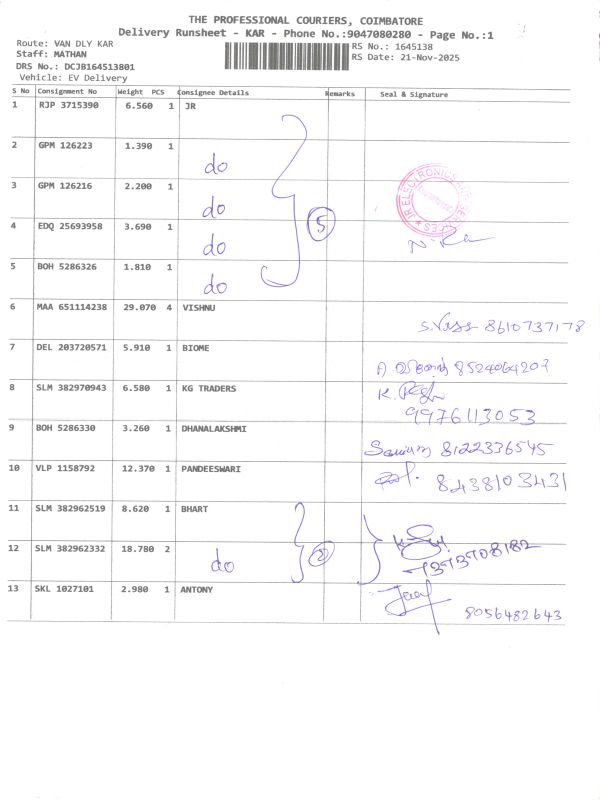 THE PROFESSIONAL COURIERS, COIMBATORE
Delivery Runsheet - KAR - Phone No.:9047080280 - Page No.:1
Route: VAN DLY KAR
Staff: MATHAN
DRS No.: DCJB164513801
Vehicle: EV Delivery
RS No.: 1645138
RS Date: 21-Nov-2025
S No Consignment No Weight PCS Consignee Details Remarks Seal & Signature
1 RJP 3715390 6.560 1 JR
2 GPM 126223 1.390 1 do
3 GPM 126216 2.200 1 do
4 EDQ 25693958 3.690 1 do
5 BOH 5286326 1.810 1 do
5
6 MAA 651114238 29.070 4 VISHNU 8610737178
7 DEL 203720571 5.910 1 BIOME
8 SLM 382970943 6.580 1 KG TRADERS K.
9976113053
9 BOH 5286330 3.260 1 DHANALAKSHMI 8122336545
10 VLP 1158792 12.370 1 PANDEESWARI 8438103431
11 SLM 382962519 8.620 1 BHART
12 SLM 382962332 18.780 2 do 2
7373708182
13 SKL 1027101 2.980 1 ANTONY 8056482643